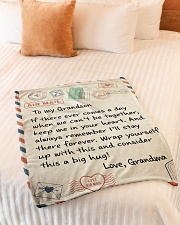 AIR MAIL
To my Grandson
If there ever comes a day
when we can't be together,
keep me in your heart. And
always remember I'll stay
there forever. Wrap yourself
up with this and consider
this a big hug!
Love, Grandma